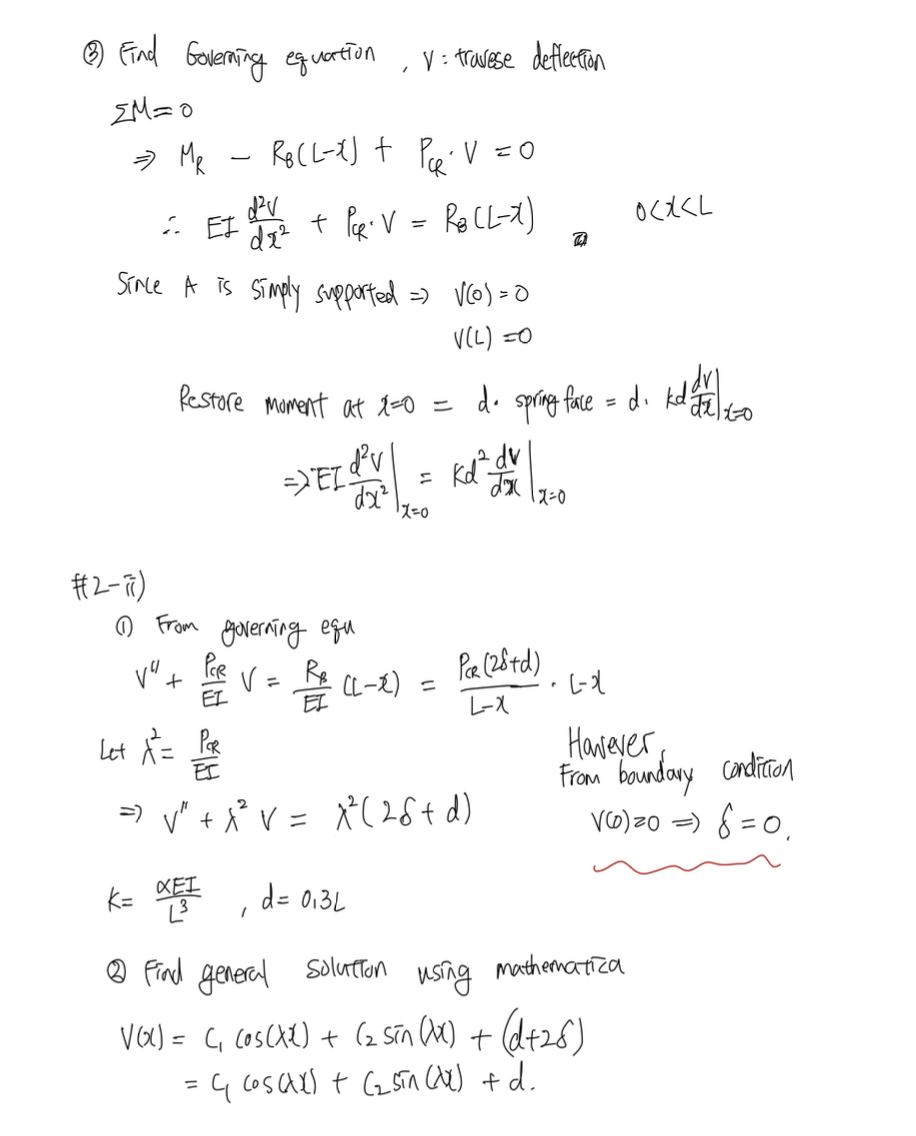 ③ Find Governing equation , V : travese deflection
ΣM=0
⇒ M_R − R_B(L-x) + P_CR · V = 0
∴ EI d²V/dx² + P_CR · V = R_B (L-x) 0<x<L
Since A is simply supported ⇒ V(0)=0
V(L)=0
Restore moment at x=0 = d· spring force = d· kd dV/dx |x=0
⇒ EI d²V/dx² |x=0 = kd² dV/dx |x=0
#2-ii)
① From governing equ
V'' + P_CR/EI V = R_B/EI (L-x) = P_CR(2δ+d)/L-x · L-x
Let λ² = P_CR/EI
However,
From boundary condition
⇒ V'' + λ² V = λ²(2δ+d)
V(0)=0 ⇒ δ=0.
k= αEI/L³ , d= 0.3L
② Find general solution using mathematiza
V(x) = C₁ cos(λx) + C₂ sin(λx) + (d+2δ)
= C₁ cos(λx) + C₂ sin(λx) + d.